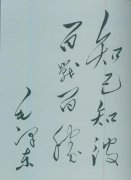 知己知彼
百战百胜
毛泽东